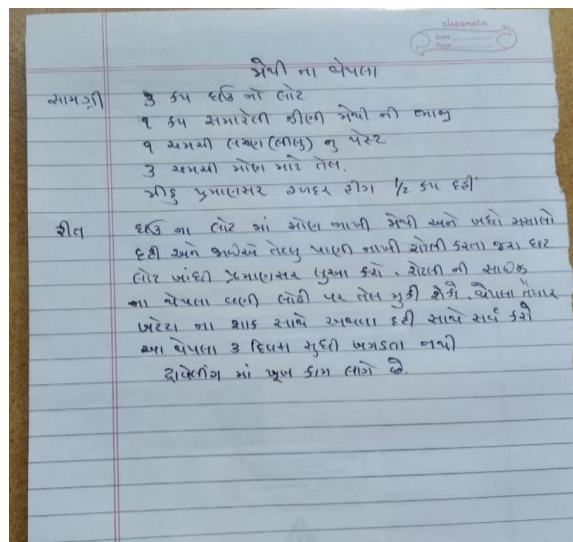 classmate
Date
Page
મેથી ના થેપલા
સામગ્રી 3 કપ ઘઉં નો લોટ
૧ કપ સમારેલી ઝીણી મેથી ની ભાજી
૧ ચમચી લસણ (લીલુ) નુ પેસ્ટ
3 ચમચી મોણ માટે તેલ.
મીઠુ પ્રમાણસર. હળદર હીંગ 1/2 કપ દહીં
રીત ઘઉં ના લોટ માં મોણ નાખી મેથી અને બધો મસાલો
દહીં અને જોઈએ તેટલુ પાણી નાખી રોટલી કરતા જરા કઠણ
લોટ બાંધી પ્રમાણસર લુઆ કરો. રોટલી ની સાઈઝ
ના થેપલા વણી લોઢી પર તેલ મુકી શેકો. થેપલા તૈયાર
બટેટા ના શાક સાથે અથવા દહીં સાથે સર્વ કરો
આ થેપલા 3 દિવસ સુધી બગડતા નથી
ટ્રાવેલીંગ માં ખૂબ કામ લાગે છે.